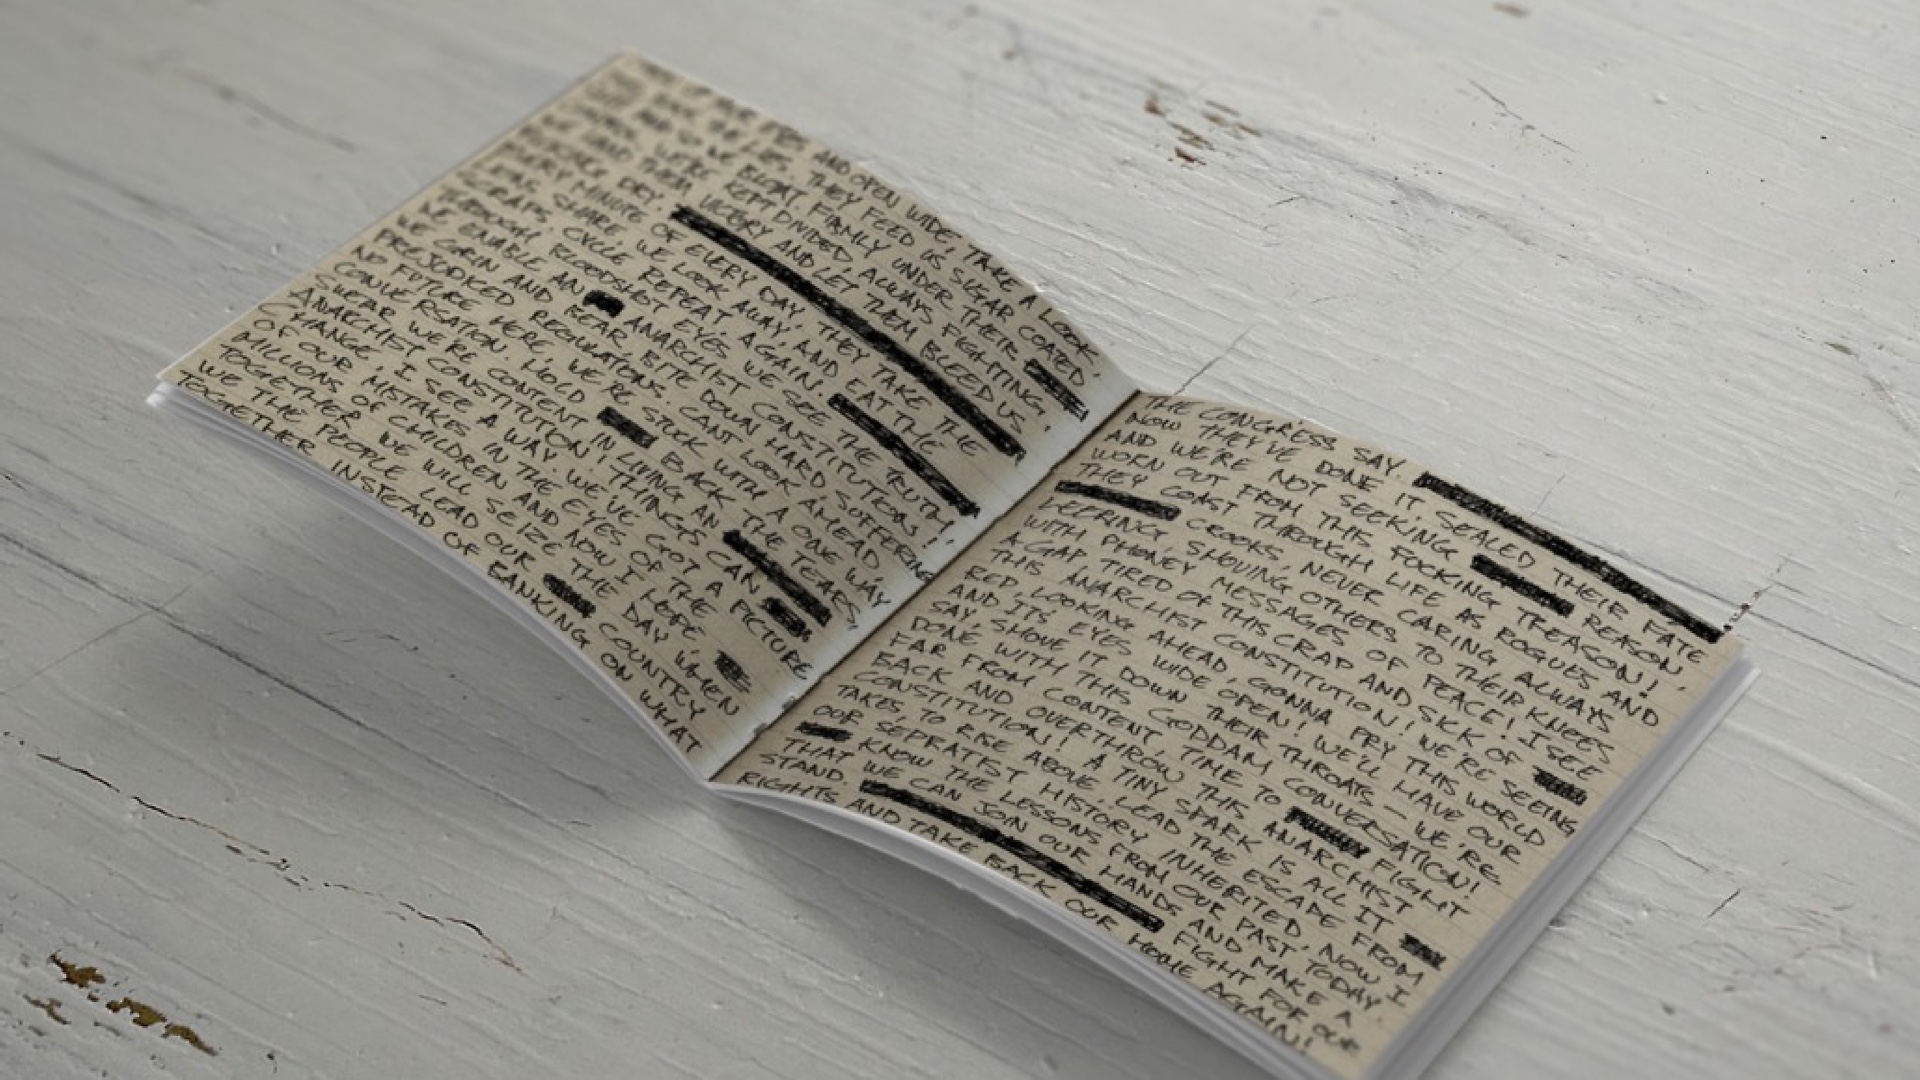 UP YOUR EYES AND OPEN WIDE, TAKE A LOOK,
FACE THE LIES. THEY FEED US SUGAR COATED
AND SO WE BLOAT. FIRMLY UNDER THEIR
CONTROL, WE'RE KEPT DIVIDED, ALWAYS FIGHTING,
WE HAND THEM VICTORY AND LET THEM BLEED US
FUCKING DRY.
EVERY MINUTE OF EVERY DAY, THEY TAKE THE
LIONS SHARE, WE LOOK AWAY, AND EAT THE
SCRAPS. CYCLE REPEAT, AGAIN.
THROUGH BLOODSHOT EYES WE SEE THE TRUTH,
WE ENABLE AN ANARCHIST CONSTITUTION!
WE GRIN AND BEAR, BITE DOWN HARD SUFFERING
PREJUDICED REGULATIONS. CANT LOOK AHEAD
NO FUTURE HERE, WE'RE STUCK WITH A ONE WAY
CONVERSATION. HOLD BACK THE TEARS,
SWEAR WE'RE CONTENT IN LIVING AN
ANARCHIST CONSTITUTION! THINGS CAN
CHANGE, I SEE A WAY. WE'VE GOT A PICTURE
OF OUR MISTAKES IN THE EYES OF THE
MILLIONS OF CHILDREN AND NOW I HOPE
TOGETHER WE WILL SEIZE THE DAY WHEN
WE THE PEOPLE LEAD OUR COUNTRY
TOGETHER INSTEAD OF BANKING ON WHAT
THE CONGRESS SAY.
NOW THEY'VE DONE IT SEALED THEIR FATE
AND WE'RE NOT SEEKING REASON!
WORN OUT FROM THIS FUCKING TREASON!
THEY COAST THROUGH LIFE AS ROGUES AND
CROOKS, NEVER CARING, ALWAYS
LEERING, SHOVING OTHERS TO THEIR KNEES
WITH PHONEY MESSAGES OF PEACE! I SEE
A GAP, TIRED OF THIS CRAP AND SICK OF
THIS ANARCHIST CONSTITUTION! WE'RE SEEING
RED, LOOKING AHEAD, GONNA PRY THIS WORLD
AND IT'S EYES WIDE OPEN! WE'LL HAVE OUR
SAY, SHOVE IT DOWN THEIR THROATS — WE'RE
DONE WITH THIS GODDAM CONVERSATION!
FAR FROM CONTENT, TIME TO FIGHT
BACK AND OVERTHROW THIS ANARCHIST
CONSTITUTION! A TINY SPARK IS ALL IT
TAKES, TO RISE ABOVE, LEAD THE ESCAPE FROM
OUR SEPRATIST HISTORY INHERITED, NOW I
KNOW THE LESSONS FROM OUR PAST TODAY.
THAT WE CAN JOIN OUR HANDS AND MAKE A
STAND. FIGHT FOR OUR
RIGHTS AND TAKE BACK OUR HOME AGAIN!